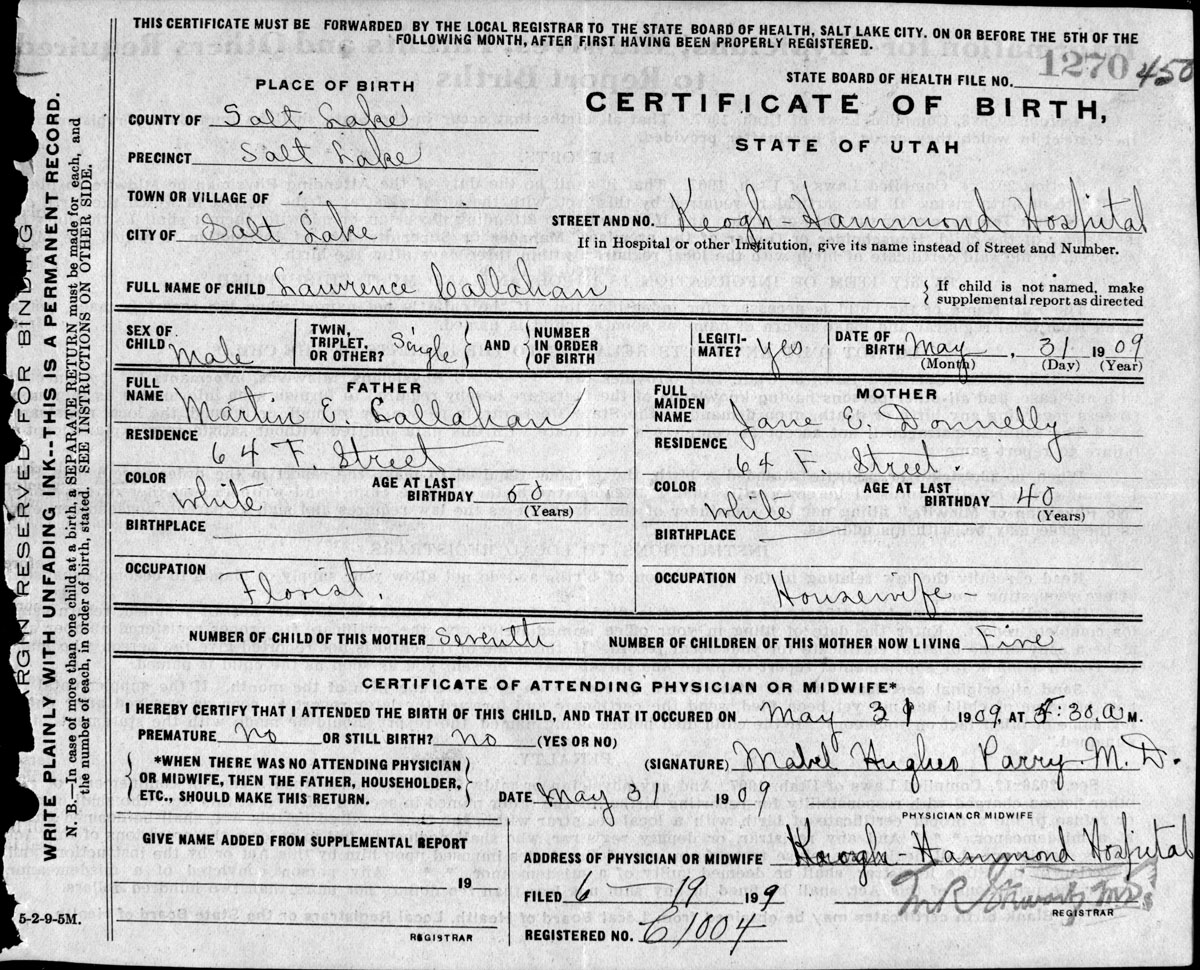 THIS CERTIFICATE MUST BE FORWARDED BY THE LOCAL REGISTRAR TO THE STATE BOARD OF HEALTH, SALT LAKE CITY. ON OR BEFORE THE 5TH OF THE
FOLLOWING MONTH, AFTER FIRST HAVING BEEN PROPERLY REGISTERED.
STATE BOARD OF HEALTH FILE NO. 1270 450
PLACE OF BIRTH
CERTIFICATE OF BIRTH,
STATE OF UTAH
COUNTY OF Salt Lake
PRECINCT Salt Lake
TOWN OR VILLAGE OF
CITY OF Salt Lake
STREET AND NO. Keogh Hammond Hospital
If in Hospital or other Institution, give its name instead of Street and Number.
FULL NAME OF CHILD Lawrence Callahan
If child is not named, make
supplemental report as directed
SEX OF CHILD Male
TWIN, TRIPLET, OR OTHER? Single AND NUMBER IN ORDER OF BIRTH
LEGITIMATE? yes
DATE OF BIRTH May, 31 1909
(Month) (Day) (Year)
FATHER
FULL NAME Martin E. Callahan
RESIDENCE 64 F. Street
COLOR White AGE AT LAST BIRTHDAY 50
(Years)
BIRTHPLACE
OCCUPATION Florist.
MOTHER
FULL MAIDEN NAME Jane E. Donnelly
RESIDENCE 64 F. Street.
COLOR White AGE AT LAST BIRTHDAY 40
(Years)
BIRTHPLACE
OCCUPATION Housewife
NUMBER OF CHILD OF THIS MOTHER Seventh NUMBER OF CHILDREN OF THIS MOTHER NOW LIVING Five
CERTIFICATE OF ATTENDING PHYSICIAN OR MIDWIFE*
I HEREBY CERTIFY THAT I ATTENDED THE BIRTH OF THIS CHILD, AND THAT IT OCCURED ON May 31 1909, AT :30, a M.
PREMATURE no OR STILL BIRTH? no (YES OR NO)
*WHEN THERE WAS NO ATTENDING PHYSICIAN
OR MIDWIFE, THEN THE FATHER, HOUSEHOLDER,
ETC., SHOULD MAKE THIS RETURN.
(SIGNATURE) Mabel Hughes Parry M. D.
DATE May 31 1909
PHYSICIAN OR MIDWIFE
GIVE NAME ADDED FROM SUPPLEMENTAL REPORT
19
REGISTRAR
ADDRESS OF PHYSICIAN OR MIDWIFE Keogh-Hammond Hospital
FILED 6 19 199
REGISTRAR
REGISTERED NO. 61004
5-2-9-5M.
ARGIN RESERVED FOR BINDING
WRITE PLAINLY WITH UNFADING INK--THIS IS A PERMANENT RECORD.
N. B.—In case of more than one child at a birth, a SEPARATE RETURN must be made for each, and
the number of each, in order of birth, stated. SEE INSTRUCTIONS ON OTHER SIDE.